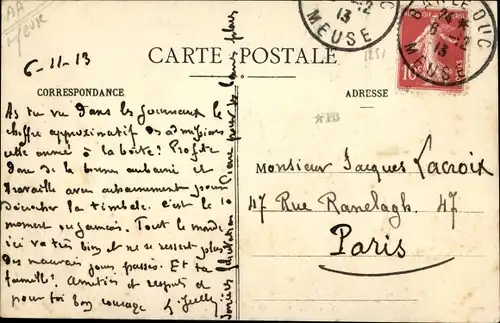 AA
Meuse
6-11-13
CARTE POSTALE
CORRESPONDANCE
ADRESSE
BAR-LE-DUC
6-12
13
MEUSE
10
12
13
MEUSE
1251
*PB
As tu vu dans les journaux le
chiffre approximatif des admissions
cette année à la boîte? Profite
donc de la bonne aubaine et
travaille avec acharnement pour
décrocher la timbale. C'est le
moment ou jamais. Tout le monde
ici va très bien et ne se ressent plus
des mauvais jours passés. Et ta
famille? Amitiés et respects de
pour toi bon courage
Monsieur Jacques Lacroix
47 Rue Ranelagh. 47
Paris